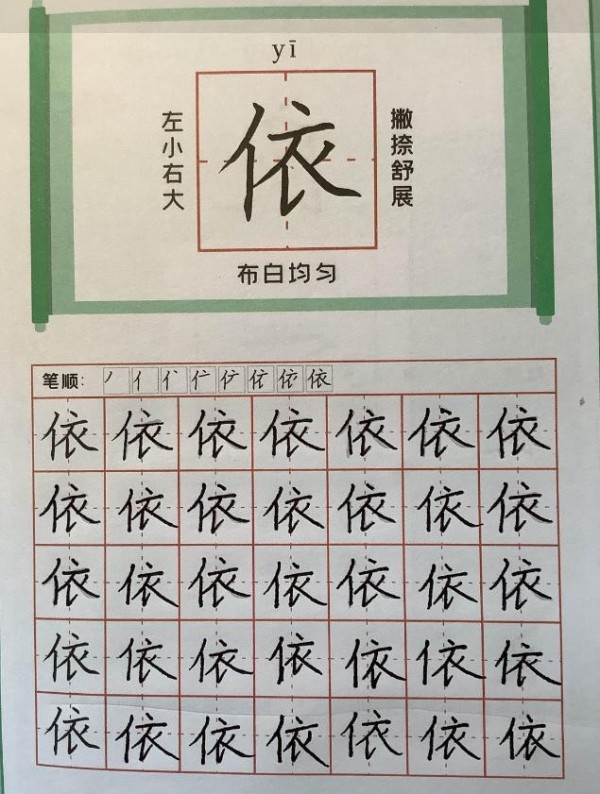 yī
左小右大
依
撇捺舒展
布白均匀
笔顺: 丿 亻 亻 亻 依
依 依 依 依 依 依 依
依 依 依 依 依 依 依
依 依 依 依 依 依 依
依 依 依 依 依 依 依
依 依 依 依 依 依 依